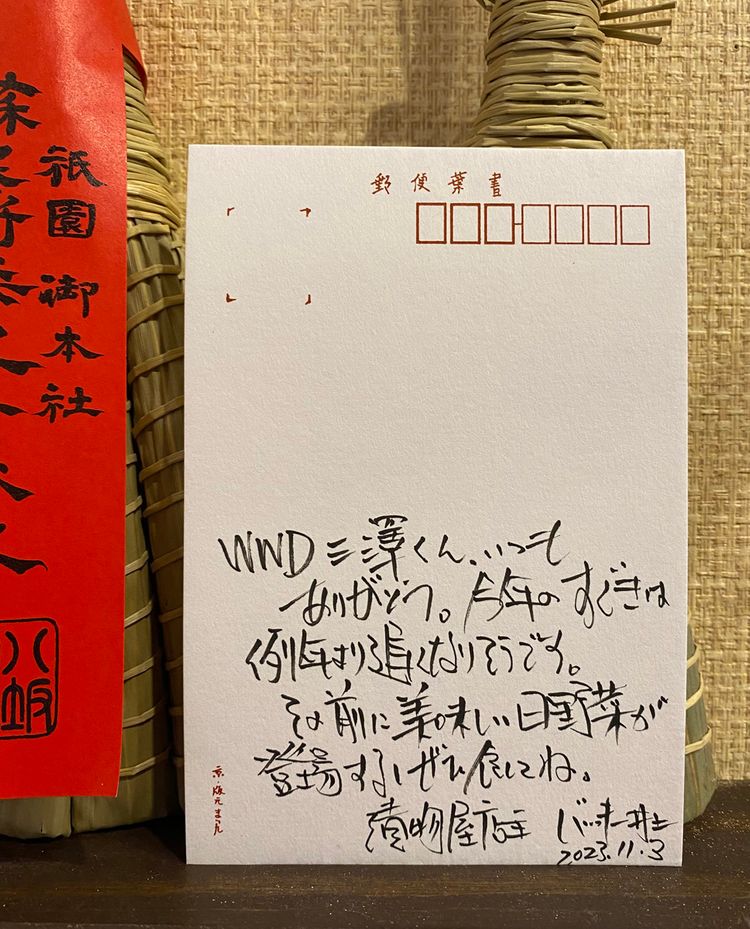 祇園御本社
八坂
郵便葉書
WWD 三澤くん、いつも
ありがとう。今年のすぐきは
例年より遅くなりそうです。
その前に美味しい日野菜が
登場するしぜひ食してね。
漬物屋店主 バッキー井上
2023.11.3